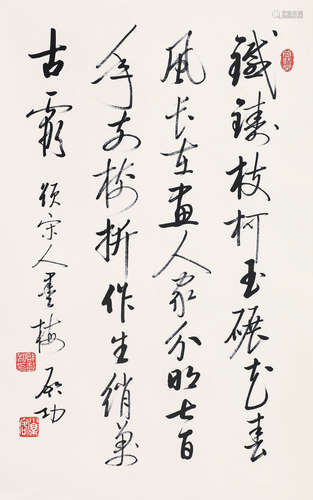 鐵鑄枝柯玉碾花春
風長在畫人家分明七百
年前樹折作生綃萬
古霞 題宋人畫梅 啟功